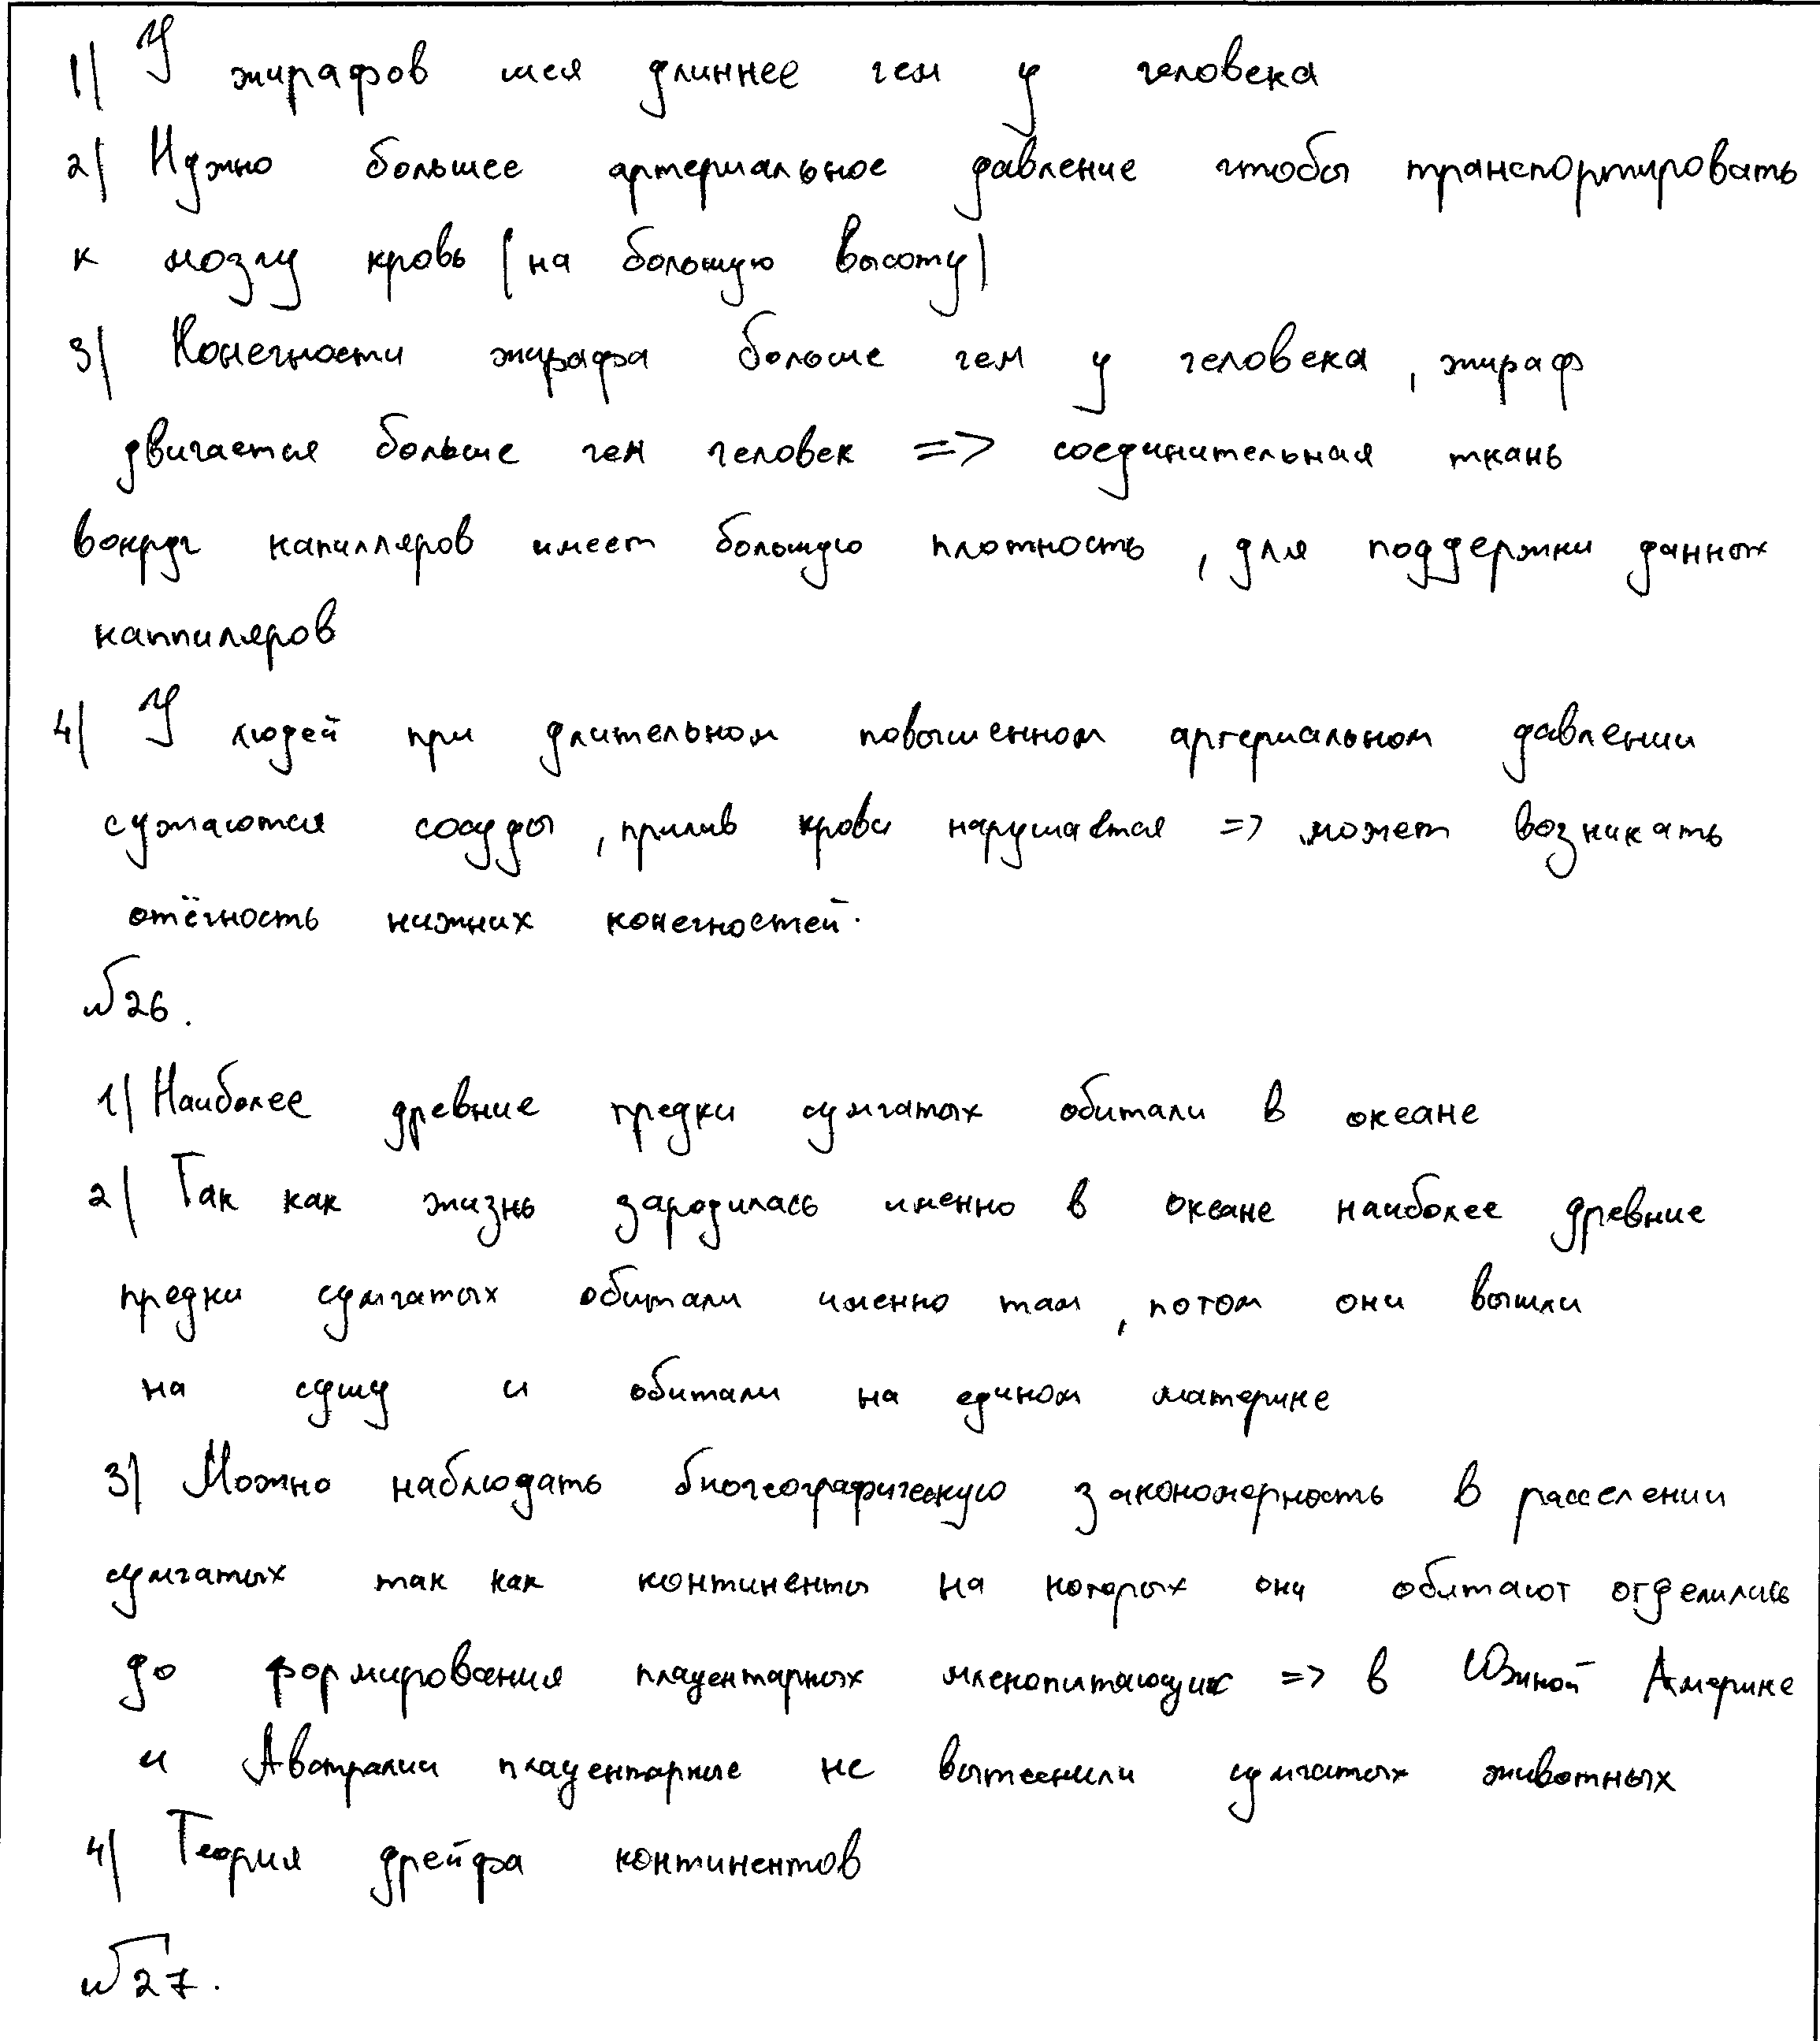 1) У жирафов шея длиннее чем у человека
2) Нужно большее артериальное давление чтобы транспортировать
к мозгу кровь (на большую высоту)
3) Конечности жирафа больше чем у человека, жираф
двигается больше чем человек => соединительная ткань
вокруг капилляров имеет большую плотность, для поддержки данных
каппиляров
4) У людей при длительном повышенном артериальном давлении
сужаются сосуды, прилив крови нарушается => может возникать
отёчность нижних конечностей.
№26.
1) Наиболее древние предки сумчатых обитали в океане
2) Так как жизнь зародилась именно в океане наиболее древние
предки сумчатых обитали именно там, потом они вышли
на сушу и обитали на едином материке
3) Можно наблюдать биогеографическую закономерность в расселении
сумчатых так как континенты на которых они обитают отделились
до формирования плацентарных млекопитающих => в Южной Америке
и Австралии плацентарные не вытеснили сумчатых животных
4) Теория дрейфа континентов
№27.